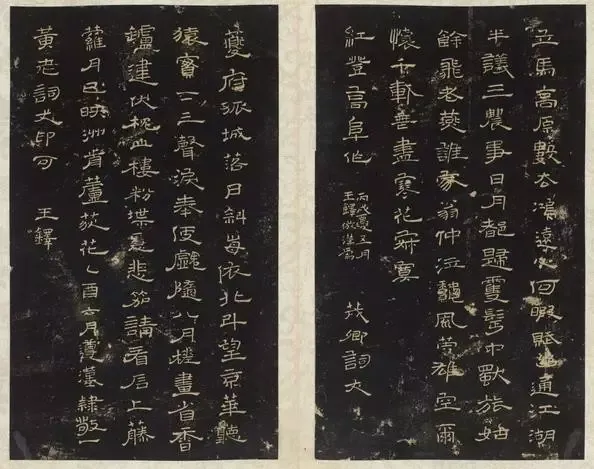 立馬高原數去鴻遠人何暇賦通江湖
半議三農事日月都歸雙髩中獸旅
餘飛老誰家翁仲泣風英雄空爾
懷千盡寒花
紅登高阜作
丙戌夏五月
王鐸倣漢書
茂卿詞丈
夔府孤城落日斜每依北斗望京華聽
猿實下三聲淚奉使虛隨八月槎畫省香
鑪違伏枕山樓粉堞隱悲笳請看石上藤
蘿月已映洲前蘆荻花乙酉六月漢隸敬一
黃老詞丈印可
王鐸